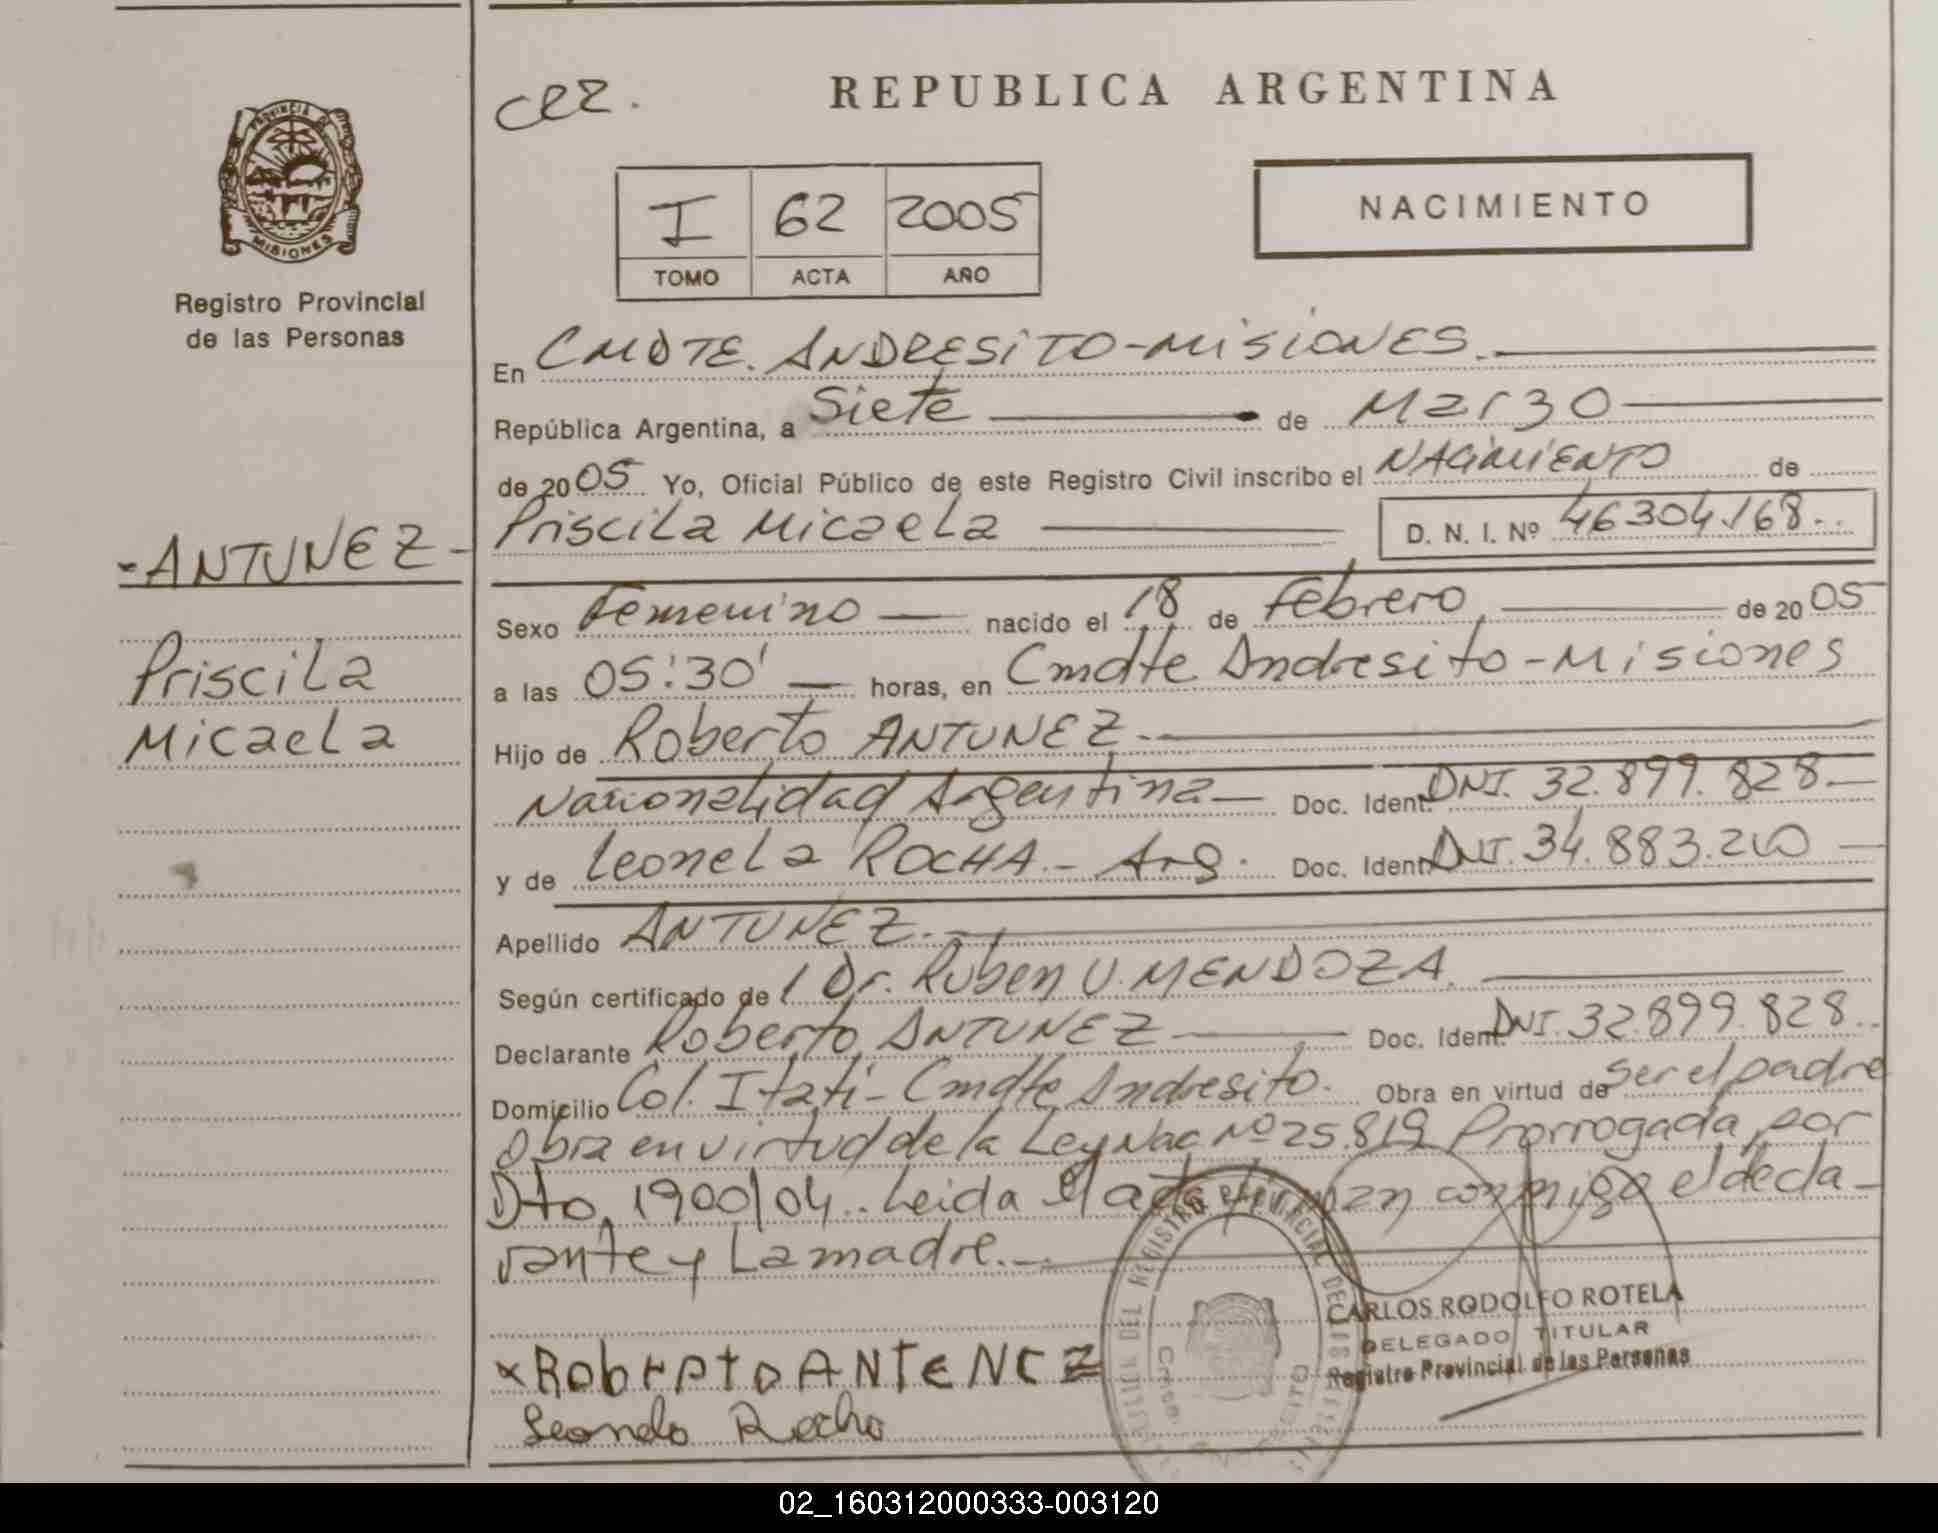 cez.
REPUBLICA ARGENTINA
PROVINCIA DE
MISIONES
Registro Provincial
de las Personas
I 62 2005
TOMO ACTA AÑO
NACIMIENTO
En CMDTE. ANDRESITO-MISIONES.
República Argentina, a Siete de Marzo
de 2005 Yo, Oficial Público de este Registro Civil inscribo el NACIMIENTO de
Priscila Micaela D. N. I. Nº 46304.168..
-ANTUNEZ-
Priscila
Micaela
Sexo Femenino nacido el 18 de Febrero de 2005
a las 05:30' horas, en Cmdte Andresito-Misiones
Hijo de Roberto ANTUNEZ.
Nacionalidad Argentina Doc. Ident. DNI. 32.899.828
y de Leonela ROCHA.- Arg. Doc. Ident. DNI. 34.883.210
Apellido ANTUNEZ.
Según certificado de 1 Dr. Ruben U. MENDOZA.
Declarante Roberto ANTUNEZ Doc. Ident. DNI. 32.899.828..
Domicilio Col. Itati-Cmdte Andresito. Obra en virtud de ser el padre
Obra en virtud de la Ley Nac Nº 25.819 Prorrogada por
Dto. 1900/04.. Leida el acta firman conmigo el decla-
rante y La madre.
x RobertoANTENEZ
Leonela Rocha
CARLOS RODOLFO ROTELA
DELEGADO TITULAR
Registro Provincial de las Personas
02_160312000333-003120